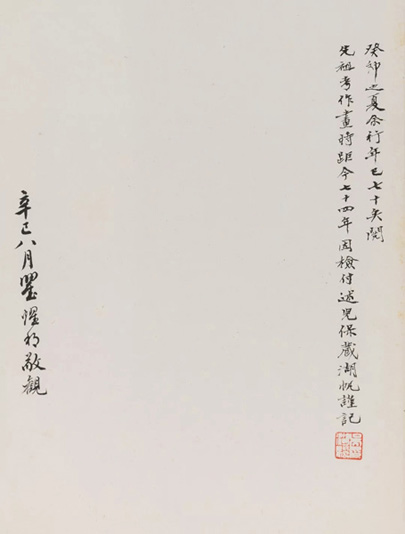 癸卯之夏余行年已七十矣閱
先祖考作畫時距今七十四年因檢付述兒保藏湖帆謹記
辛巳八月惺敬觀